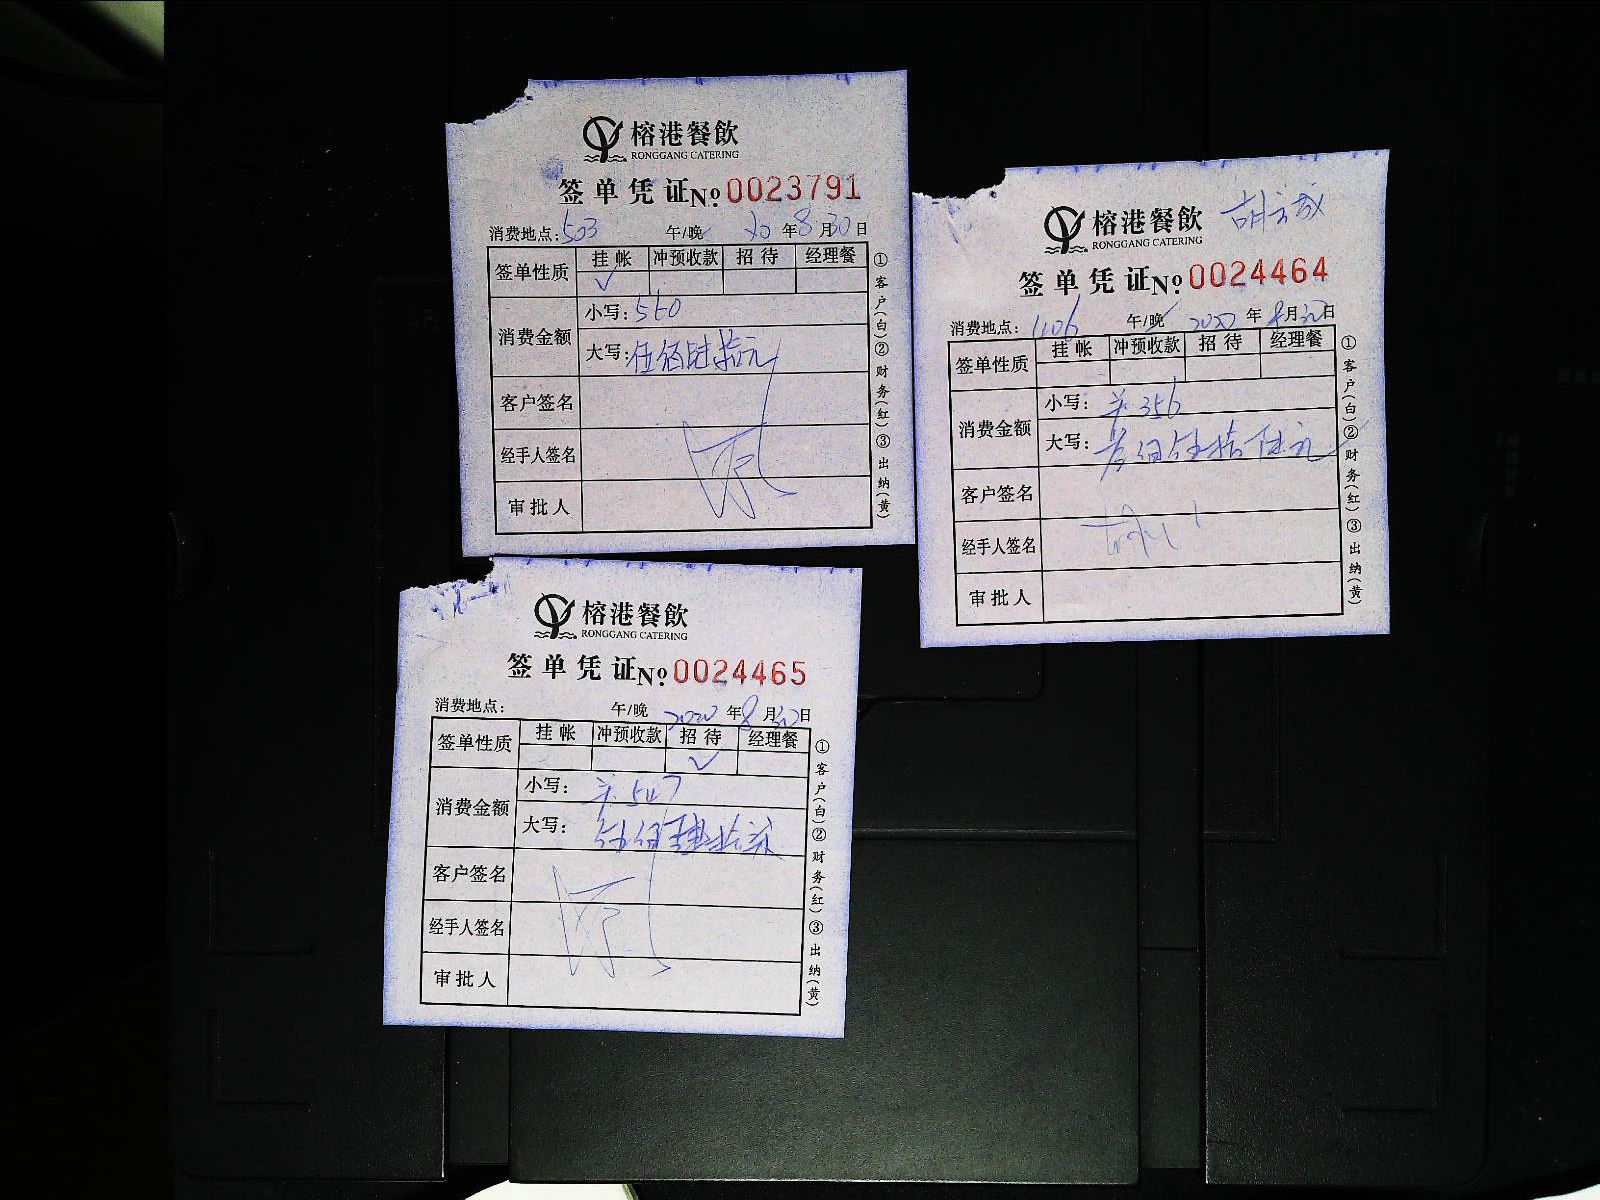 榕港餐飲
RONGGANG CATERING
签单凭证 No 0023791
消费地点:503 午/晚 20年8月30日
签单性质 挂帐 冲预收款 招待 经理餐
✓
消费金额 小写:560
大写:伍佰陆拾元
客户签名
经手人签名
审批人
①客户(白)②财务(红)③出纳(黄)
榕港餐飲
RONGGANG CATERING
签单凭证 No 0024464
消费地点:1106 午/晚 2020年8月30日
签单性质 挂帐 冲预收款 招待 经理餐
消费金额 小写:羊356
大写:叁佰伍拾陆元
客户签名
经手人签名
审批人
①客户(白)②财务(红)③出纳(黄)
榕港餐飲
RONGGANG CATERING
签单凭证 No 0024465
消费地点: 午/晚 2020年8月30日
签单性质 挂帐 冲预收款 招待 经理餐
✓
消费金额 小写:
大写:
客户签名
经手人签名
审批人
①客户(白)②财务(红)③出纳(黄)